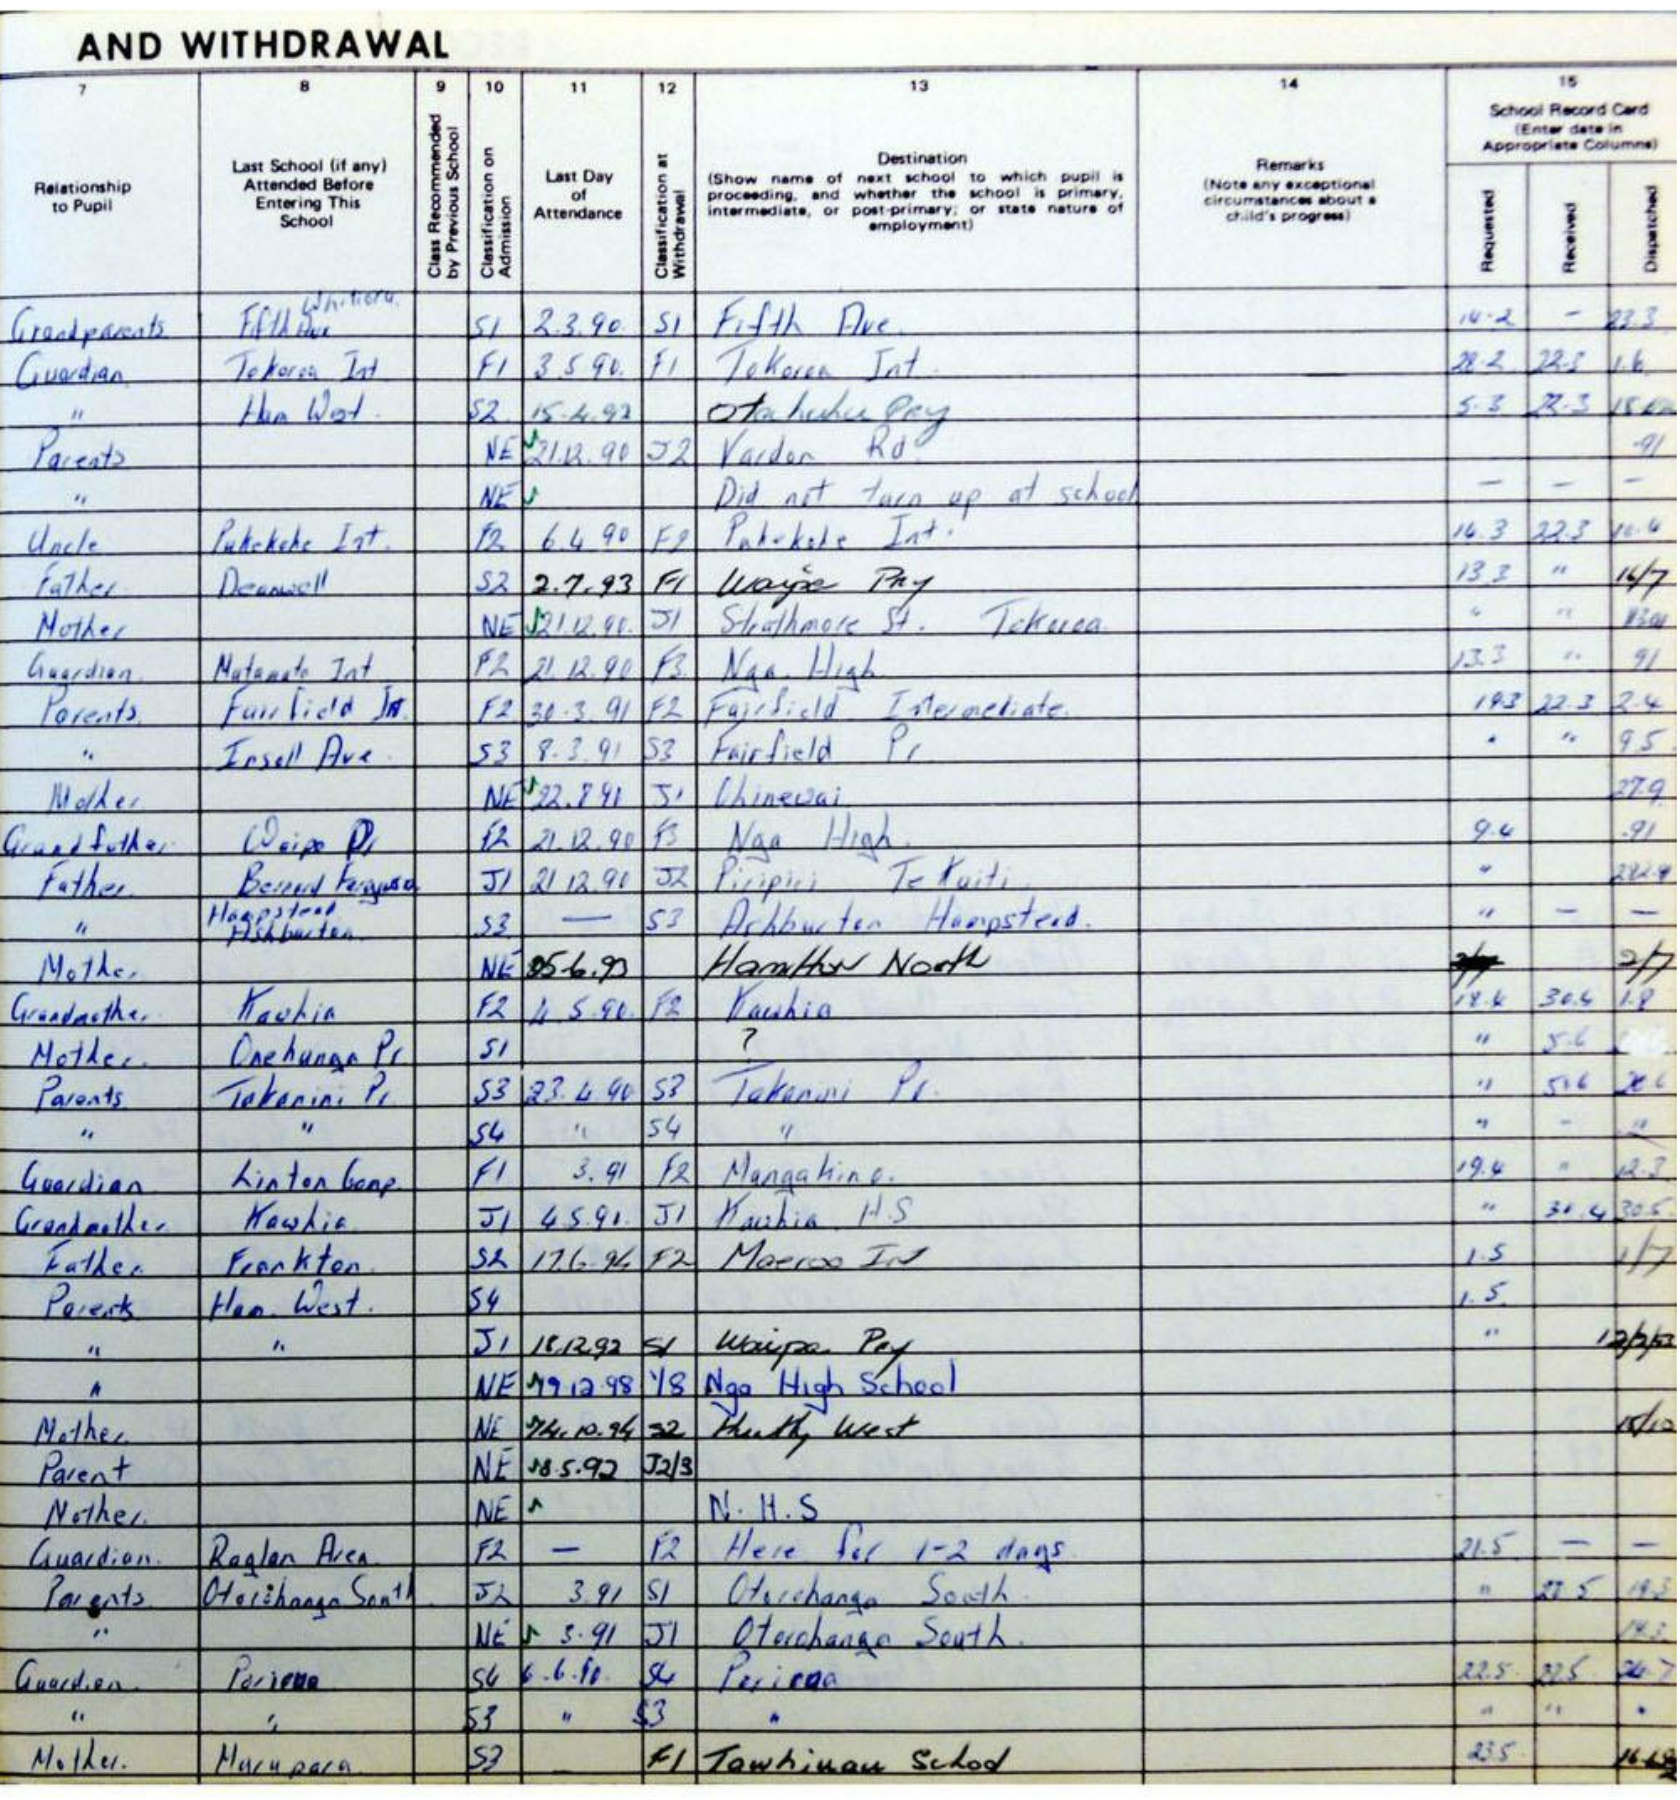 AND WITHDRAWAL
7 8 9 10 11 12 13 14 15
Relationship to Pupil
Last School (if any) Attended Before Entering This School
Class Recommended by Previous School
Classification on Admission
Last Day of Attendance
Classification at Withdrawal
Destination
(Show name of next school to which pupil is proceeding, and whether the school is primary, intermediate, or post-primary; or state nature of employment)
Remarks
(Note any exceptional circumstances about a child's progress)
School Record Card
(Enter date in Appropriate Columns)
Requested Received Dispatched
Whitiora.
Grandparents Fifth Ave S1 2.3.90. S1 Fifth Ave. 14-2 – 23.3
Guardian Tokoroa Int F1 3.5.90. F1 Tokoroa Int. 28-2 22-3 1.6
" Ham West. S2 15.4.92 Otahuhu Pry 5-3 22-3
Parents NE 21.12.90 J2 Vardon Rd. 91
" NE Did not turn up at school — — —
Uncle Pukekohe Int. F2 6.4.90 F2 Pukekohe Int. 16.3 22.3 10.4
Father Deanwell S2 2.7.93 F1 Waipa Pry 13.3 " 16/7
Mother NE 21.12.90. J1 Strathmore St. Tokoroa. " "
Guardian Matamata Int F2 21.12.90 F3 Nga. High 13.3 " 91
Parents Fairfield Int. F2 30.3.91 F2 Fairfield Intermediate. 19.3 22.3 2-4
" Insoll Ave S3 8.3.91 S3 Fairfield Pr. " " 9.5
Mother NE 22.8.91 J1 Ohinewai 27.9
Grandfather Waipa Pr F2 21.12.90 F3 Nga High. 9.4 .91
Father Bernard Fergusson J1 21.12.90 J2 Piripiri Te Kuiti. "
" Hampstead Ashburton S3 — S3 Ashburton Hampstead. " — —
Mother NE 25.6.93 Hamilton North 2/7
Grandmother Kawhia F2 4.5.90. F2 Kawhia 18.4 30.4 1.8
Mother Onehunga Pr S1 ? " 5.6
Parents Takanini Pr. S3 23.4.90 S3 Takanini Pr. " 5.6
" " S4 " S4 " " – "
Guardian Linton Camp. F1 3.91 F2 Mangakino. 19.4 " 12.3
Grandmother Kawhia J1 4.5.91. J1 Kawhia H.S " 30.4 30.5
Father Frankton S2 17.6.94 F2 Maeroa Int 1.5 1/7
Parents Ham. West. S4 1.5
" " J1 18.12.92 S1 Waipa Pry " 12/2/93
" NE 19.12.98 Y8 Nga High School
Mother NE 14.10.94 S2 Huntly West 15/10
Parent NE 8.5.92 J2/3
Mother. NE N.H.S
Guardian. Raglan Area F2 — F2 Here for 1-2 days. 21.5 — —
Parents Otorohanga South J2 3.91 S1 Otorohanga South. " 27.5 19.3
" NE 3.91 J1 Otorohanga South. 19.3
Guardian. Paeroa S4 6.6.90. S4 Paeroa 22.5. 27.5 26.7
" " S3 " S3 " " " "
Mother. Murupara S3 F1 Tawhiuau School 23.5